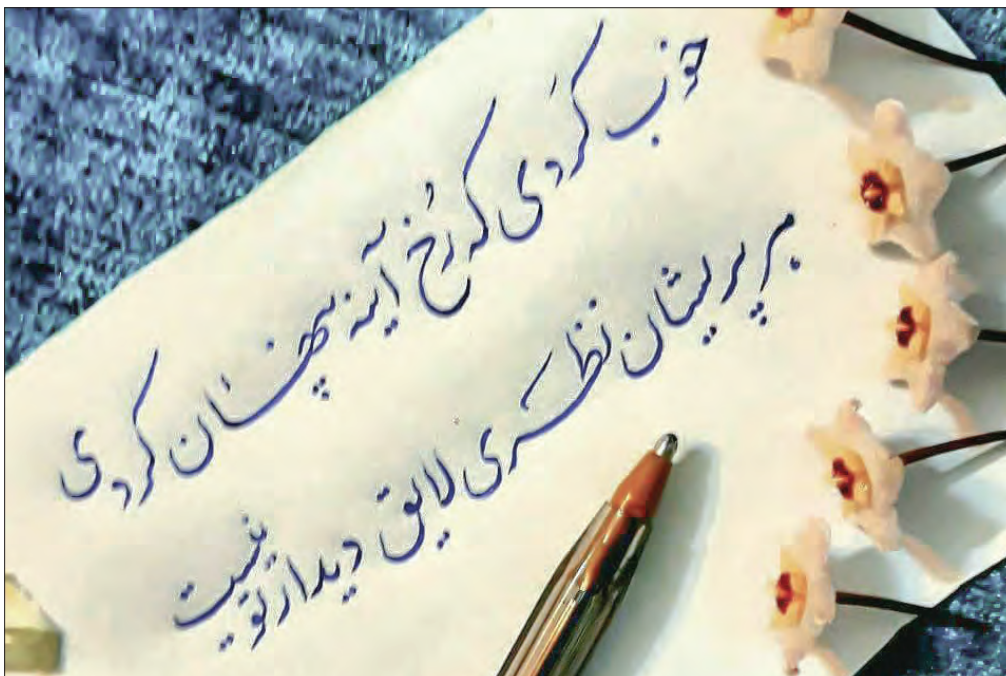 خوب کردی که رُخ آینه پنهان کردی
هر پریشان نظری لایق دیدار تو نیست